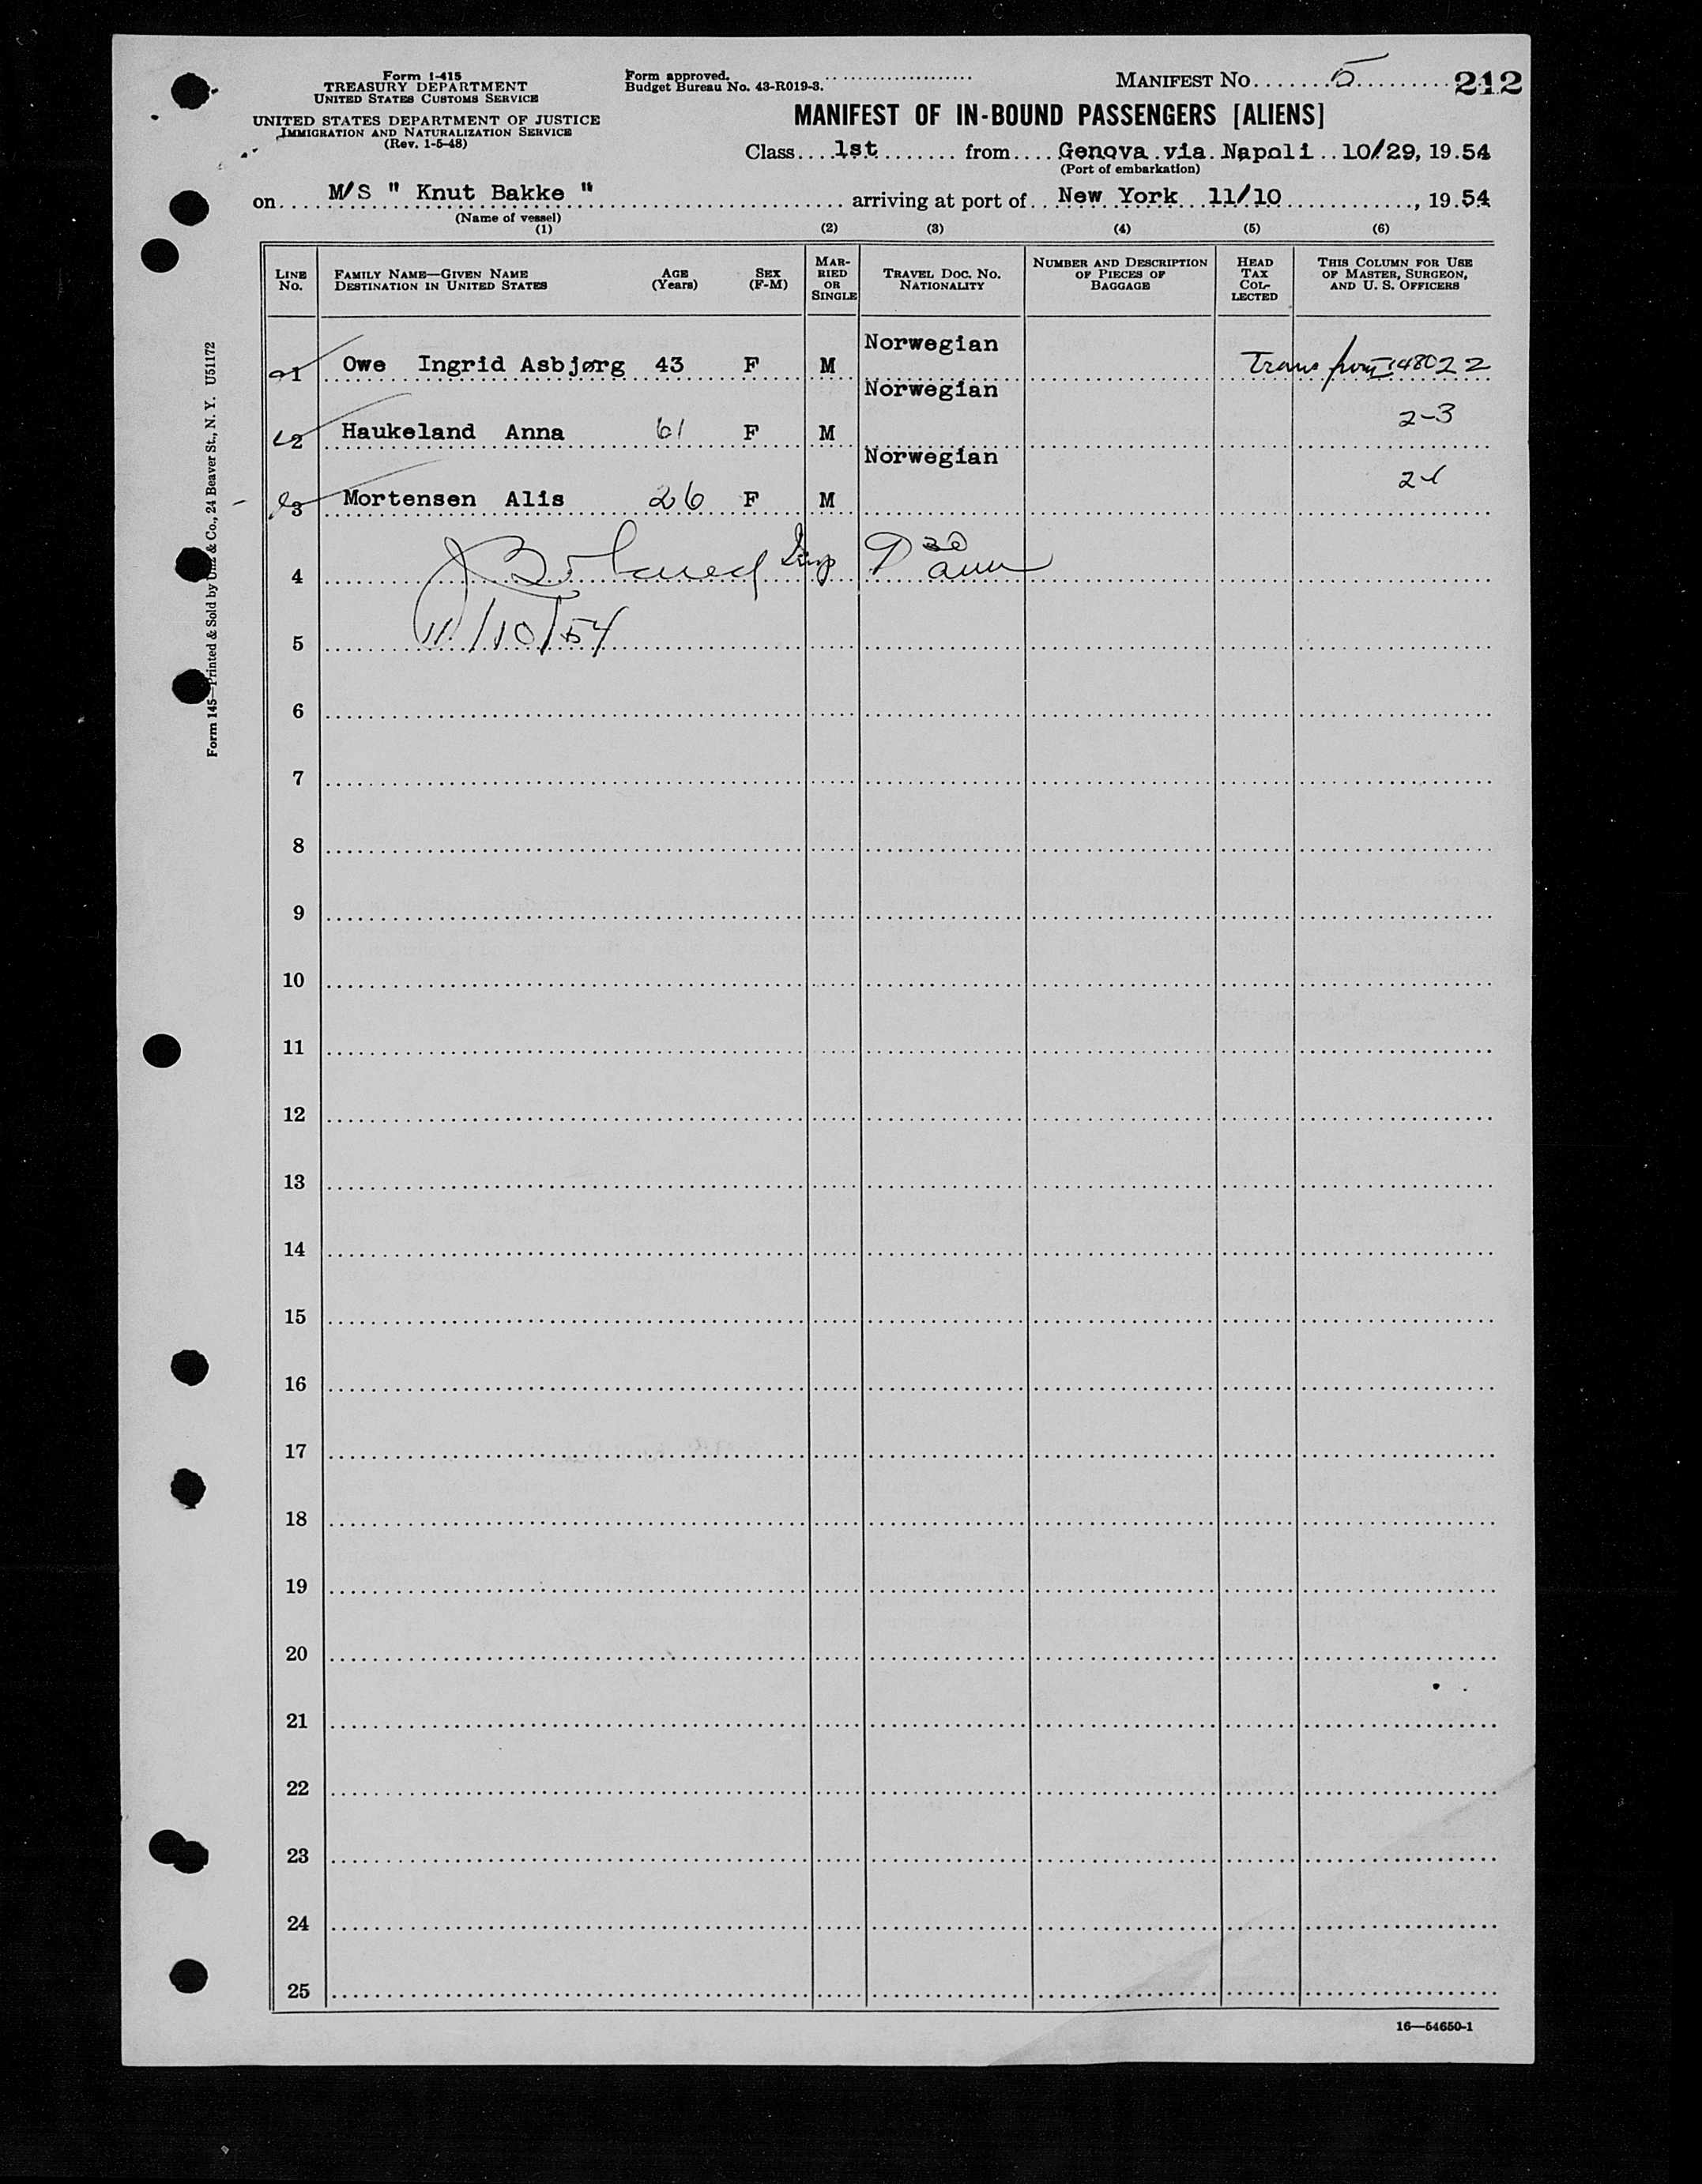 Form I-415
TREASURY DEPARTMENT
UNITED STATES CUSTOMS SERVICE
UNITED STATES DEPARTMENT OF JUSTICE
IMMIGRATION AND NATURALIZATION SERVICE
(Rev. 1-5-48)
Form approved.
Budget Bureau No. 43-R019-3.
MANIFEST NO. 5 212
MANIFEST OF IN-BOUND PASSENGERS [ALIENS]
Class 1st from Genova via Napoli 10/29, 19 54
(Port of embarkation)
on M/S " Knut Bakke " arriving at port of New York 11/10, 19 54
(Name of vessel)
(1) (2) (3) (4) (5) (6)
LINE No. FAMILY NAME—GIVEN NAME DESTINATION IN UNITED STATES AGE (Years) SEX (F-M) MARRIED OR SINGLE TRAVEL DOC. NO. NATIONALITY NUMBER AND DESCRIPTION OF PIECES OF BAGGAGE HEAD TAX COLLECTED THIS COLUMN FOR USE OF MASTER, SURGEON, AND U. S. OFFICERS
1 Owe Ingrid Asbjørg 43 F M Norwegian Trans from 148022
2 Haukeland Anna 61 F M Norwegian 2-3
3 Mortensen Alis 26 F M Norwegian
4
5 11/10/54
6
7
8
9
10
11
12
13
14
15
16
17
18
19
20
21
22
23
24
25
16—54650-1
Form 145—Printed & Sold by Unz & Co., 24 Beaver St., N. Y. U51172